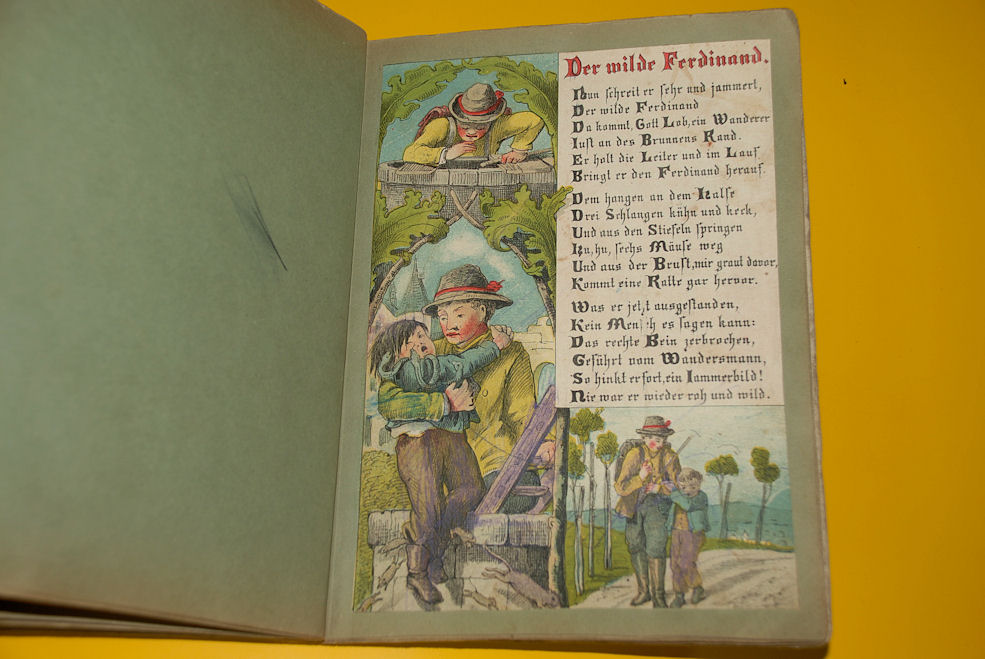 Der wilde Ferdinand.
Nun schreit er sehr und jammert,
Der wilde Ferdinand
Da kommt, Gott Lob, ein Wanderer
Just an des Brunnens Rand.
Er holt die Leiter und im Lauf
Bringt er den Ferdinand herauf.
Dem hangen an dem Halse
Drei Schlangen kühn und keck,
Und aus den Stiefeln springen
Hu, hu, sechs Mäuse weg
Und aus der Brust, mir graut davor,
Kommt eine Ratte gar hervor.
Was er jetzt ausgestanden,
Kein Mensch es sagen kann:
Das rechte Bein zerbrochen,
Geführt vom Wandersmann,
So hinkt er fort, ein Jammerbild!
Nie war er wieder roh und wild.